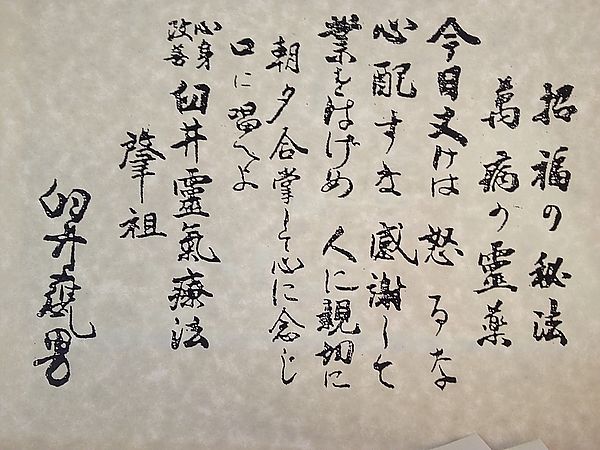 招福の秘法
萬病の靈薬
今日丈けは 怒るな
心配すな 感謝して
業をはげめ 人に親切に
朝夕合掌して心に念じ
口に唱へよ
心身改善 臼井靈氣療法
肇祖
臼井甕男